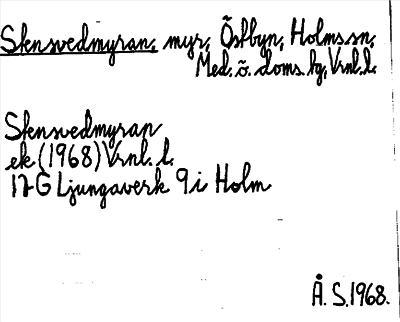 Stensvedmyran, myr, Östbyn, Holms sn,
Med. ö. doms. hg, Vrnl. l.
Stensvedmyran
ek (1968) Vrnl. l.
17G Ljungaverk 9i Holm
Å. S. 1968.